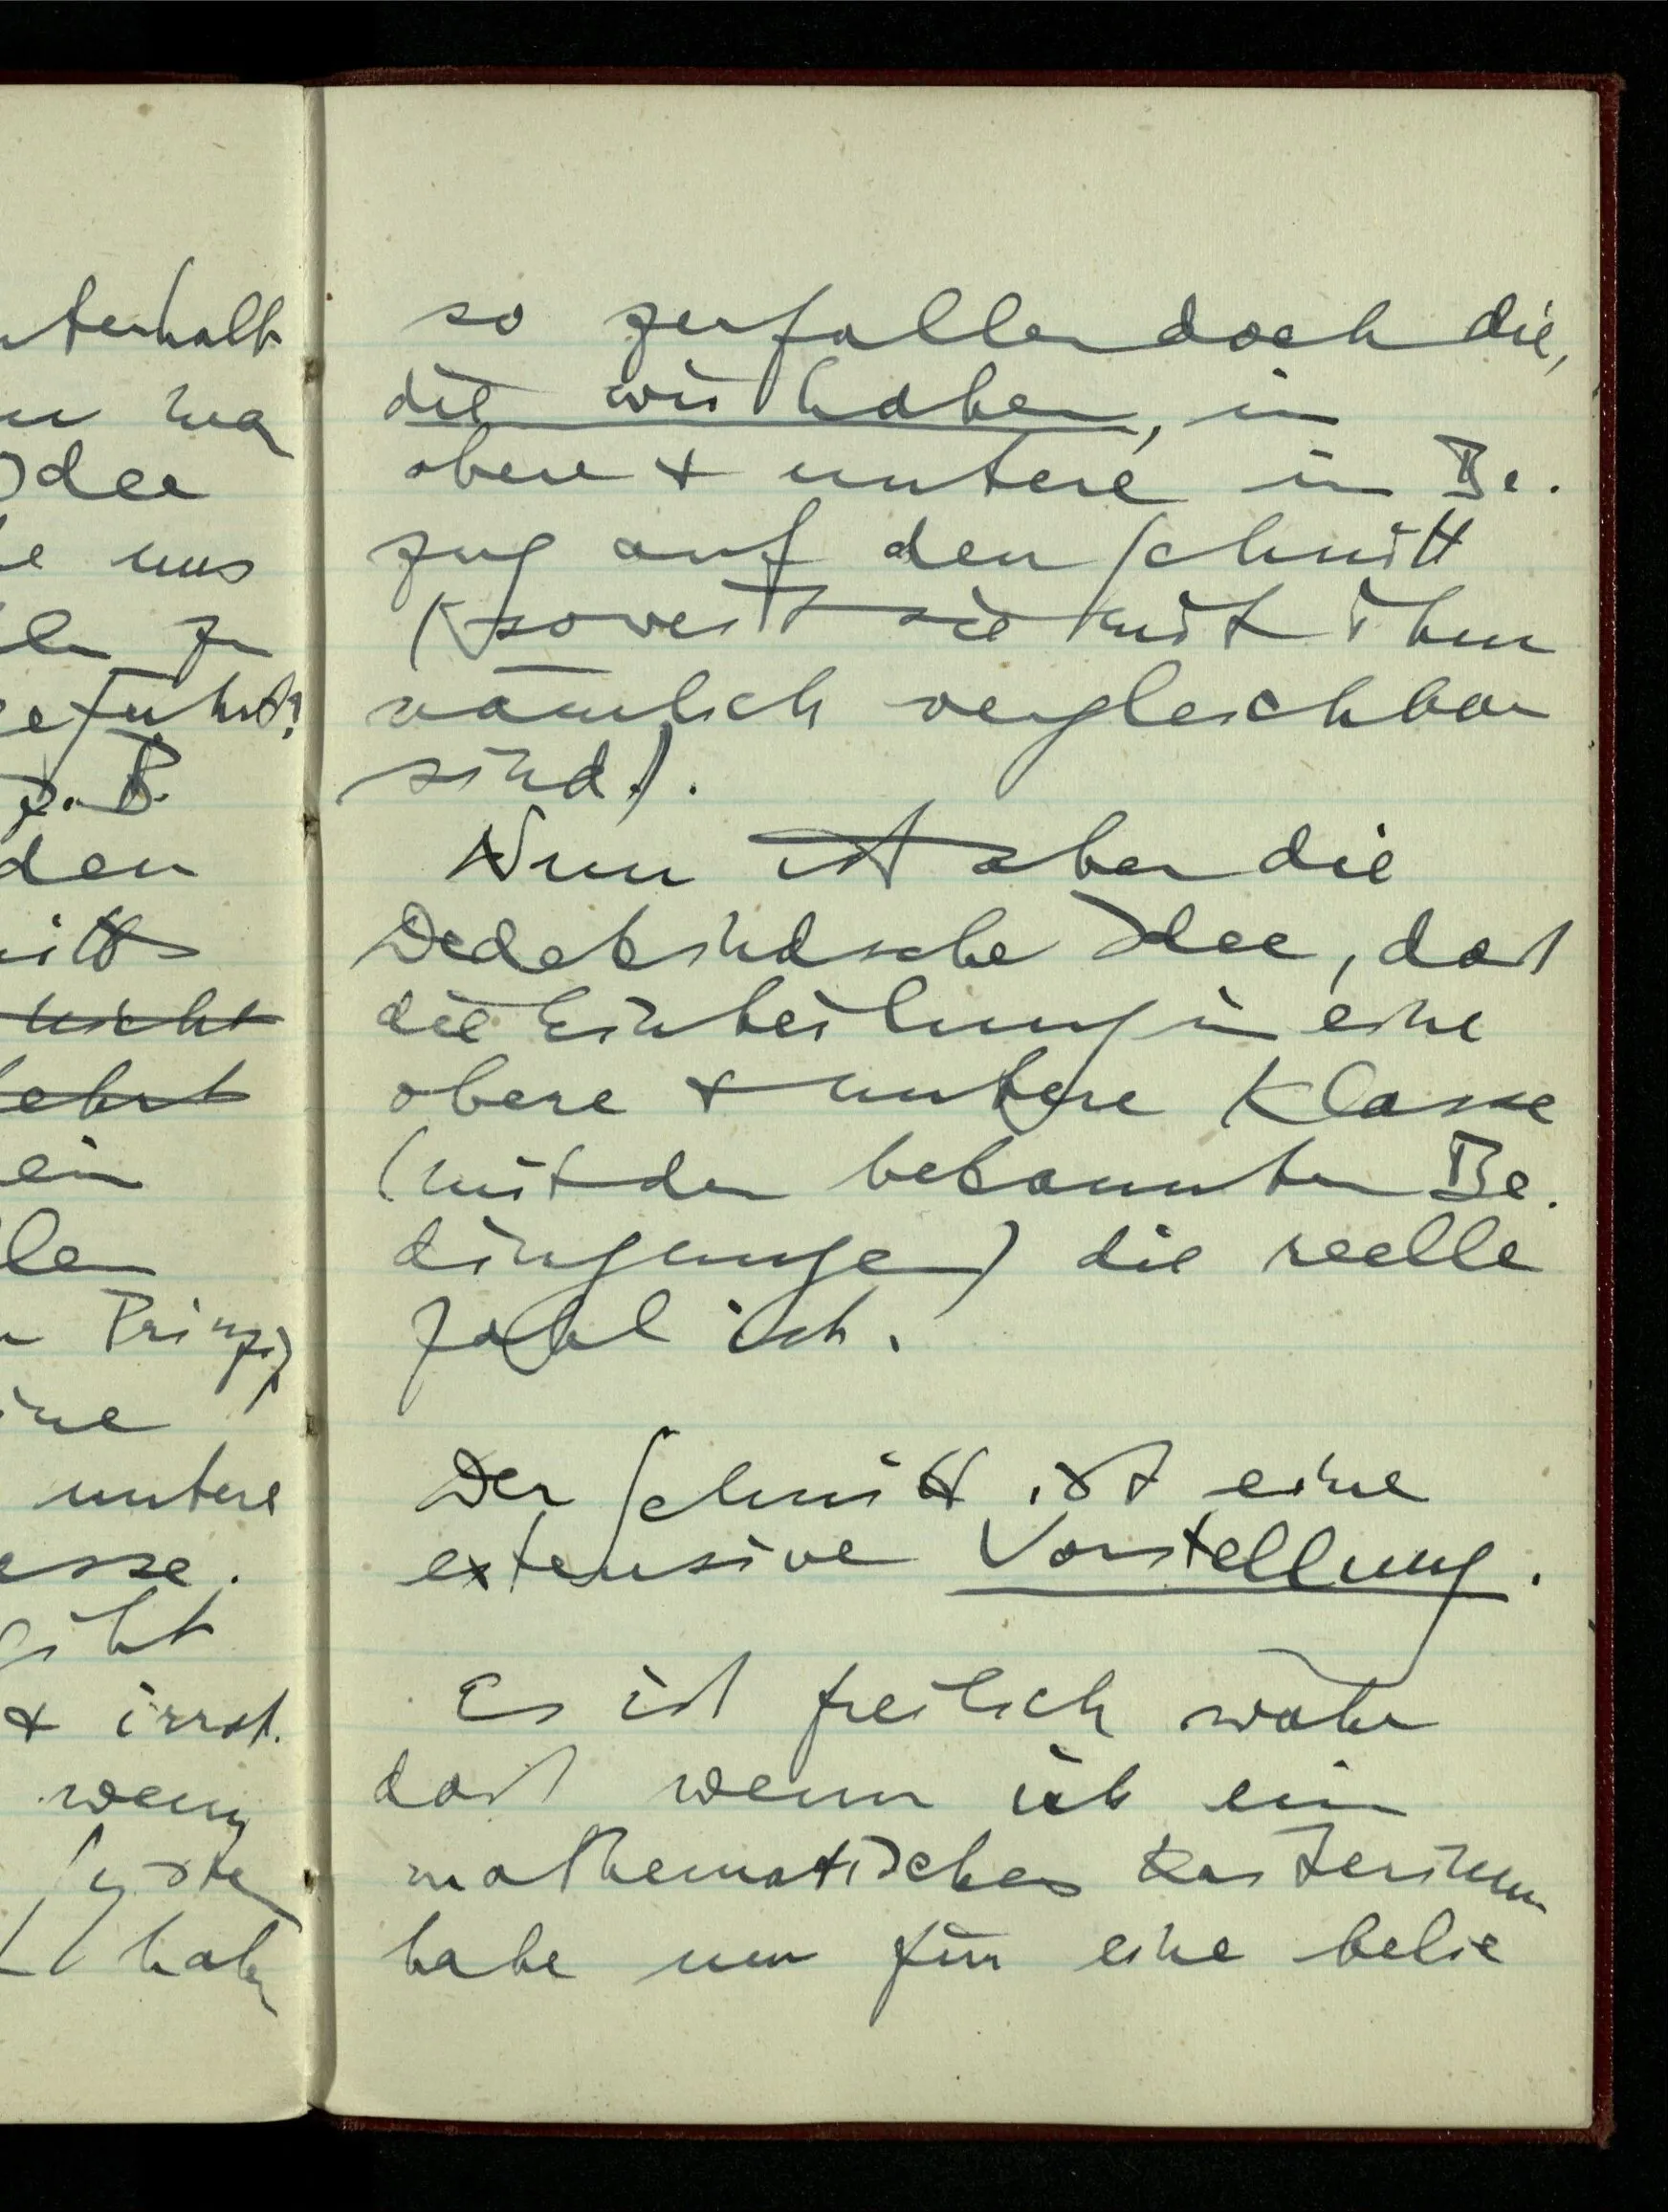 terhalb
Idee
uns
zu
geführt?
z.B.
den
nicht
ein
Prinzip
untere
.
gibt
& irrat.
wenn
Syste
habe
so zerfallen doch die,
die wir haben, in
obere & untere in Be-
zug auf den Schnitt
(soweit sie mit ihm
nämlich vergleichbar
sind).
Nun ist aber die
Dedekindsche Idee, daß
die Einteilung in eine
obere & untere Klasse
(mit den bekannten Be-
dingungen) die reelle
Zahl ist.
Der Schnitt ist eine
extensive Vorstellung.
Es ist freilich wahr
daß wenn ich ein
mathematisches Kriterium
habe um für eine belie